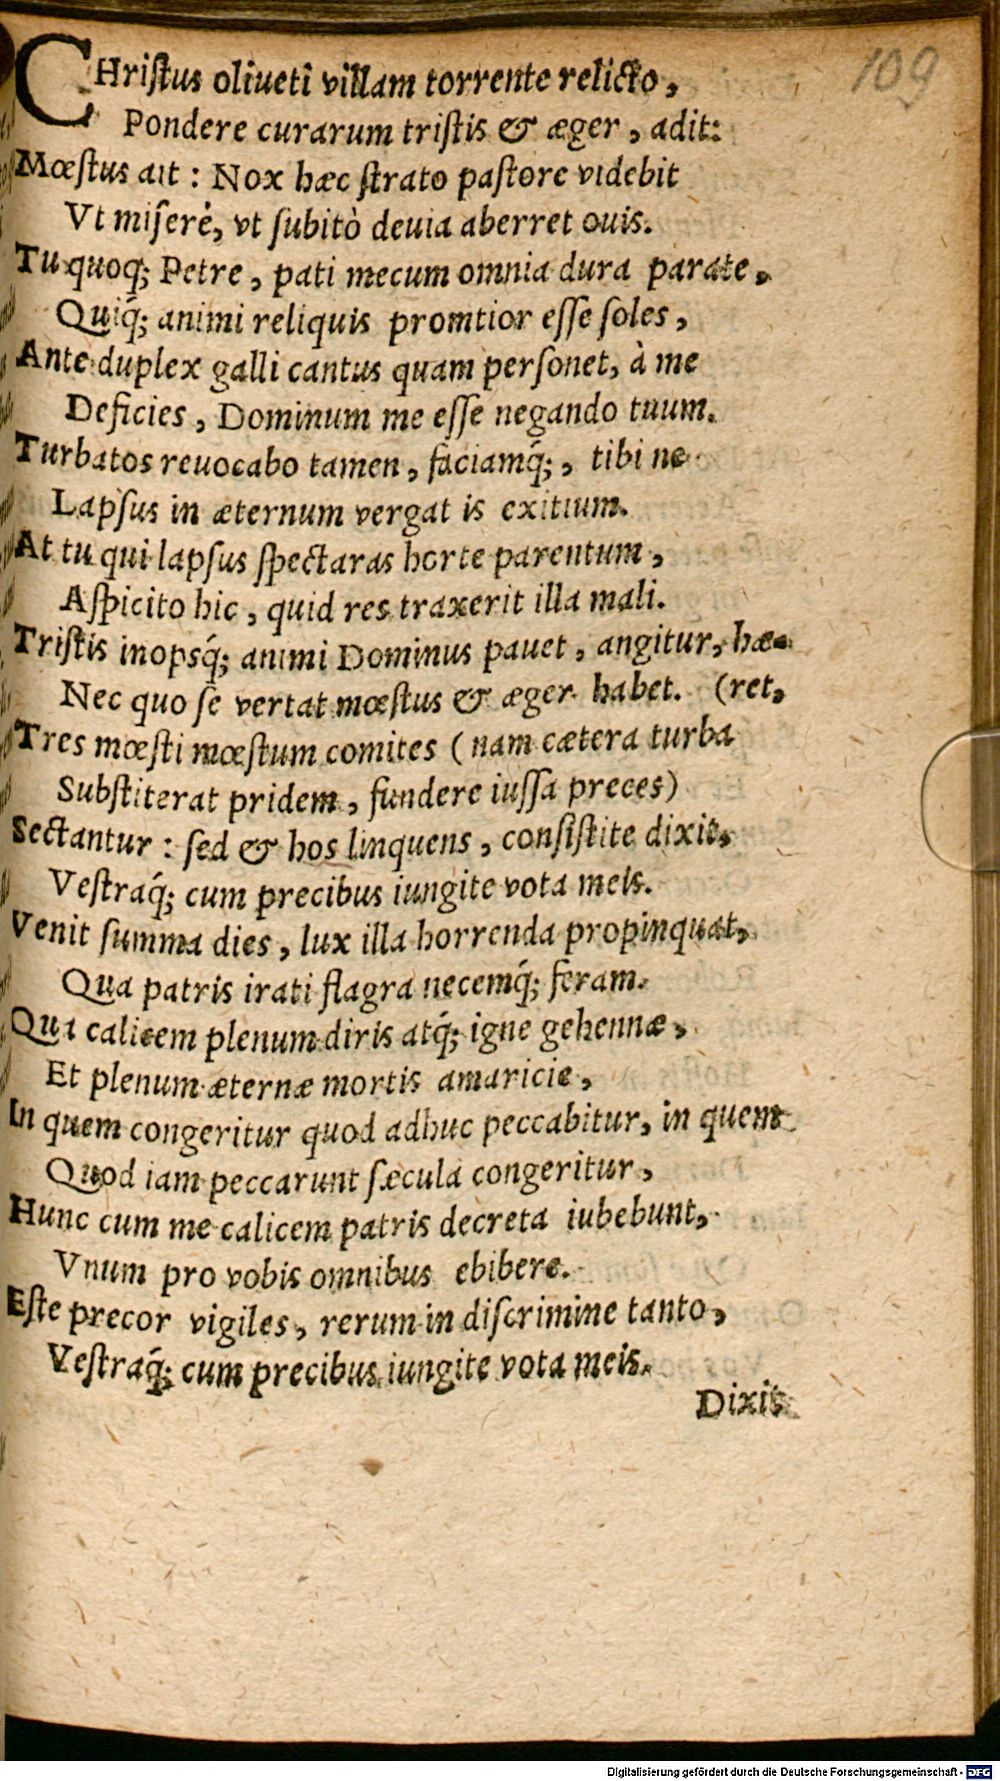 109
CHriſtus oliueti villam torrente relicto,
Pondere curarum triſtis & æger, adit:
Mœſtus ait: Nox hæc ſtrato paſtore videbit
Vt miſerè, vt ſubitò deuia aberret ouis.
Tu quoq; Petre, pati mecum omnia dura parate,
Quiq́; animi reliquis promtior eſſe ſoles,
Ante duplex galli cantus quam perſonet, à me
Deficies, Dominum me eſſe negando tuum.
Turbatos reuocabo tamen, faciamq́;, tibi ne
Lapſus in æternum vergat is exitium.
At tu qui lapſus ſpectaras horte parentum,
Aſpicito hic, quid res traxerit illa mali.
Triſtis inopsq́; animi Dominus pauet, angitur, hæ-
Nec quo ſe vertat mœſtus & æger habet. (ret,
Tres mœſti mœſtum comites (nam cætera turba
Subſtiterat pridem, fundere iuſſa preces)
Sectantur: ſed & hos linquens, conſiſtite dixit,
Veſtraq́; cum precibus iungite vota meis.
Venit ſumma dies, lux illa horrenda propinquat,
Qua patris irati flagra necemq́; feram.
Qua calicem plenum diris atq́; igne gehennæ,
Et plenum æternæ mortis amaricie,
In quem congeritur quod adhuc peccabitur, in quem
Quod iam peccarunt ſæcula congeritur,
Hunc cum me calicem patris decreta iubebunt,
Vnum pro vobis omnibus ebibere.
Eſte precor vigiles, rerum in diſcrimine tanto,
Veſtraq́; cum precibus iungite vota meis.
Dixit
Digitalisierung gefördert durch die Deutsche Forschungsgemeinschaft - DFG